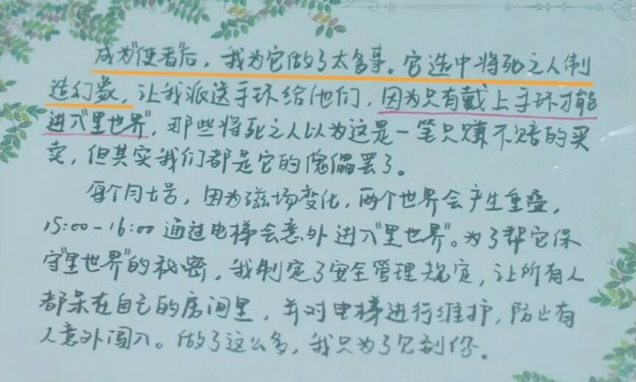 成为"使者"后,我为它做了太多事。它选中将死之人制
造幻象,让我派送手环给他们,因为只有戴上手环才能
进入"里世界",那些将死之人以为这是一笔只赚不赔的买
卖,但其实我们都是它的傀儡罢了。
每个月十号,因为磁场变化,两个世界会产生重叠,
15:00-16:00通过电梯会意外进入"里世界"。为了帮它保
守"里世界"的秘密,我制定了安全管理规定,让所有人
都呆在自己的房间里,并对电梯进行维护,防止有
人意外闯入。做了这么多,我只为了见到你。